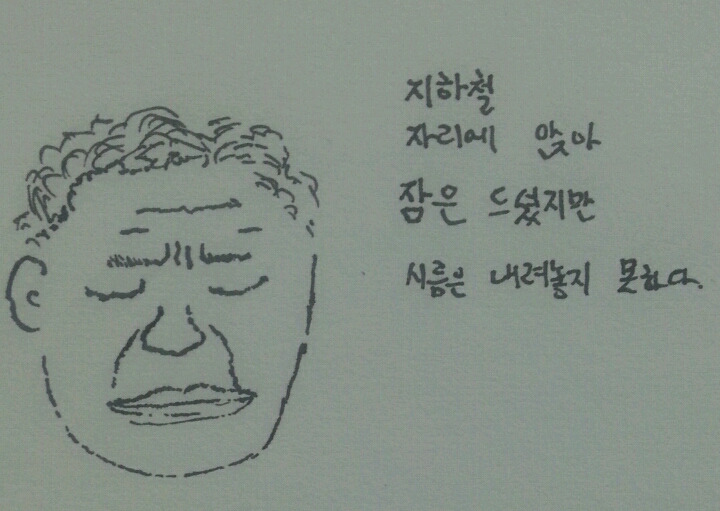 지하철
자리에 앉아
잠은 드셨지만
시름은 내려놓지 못하다.